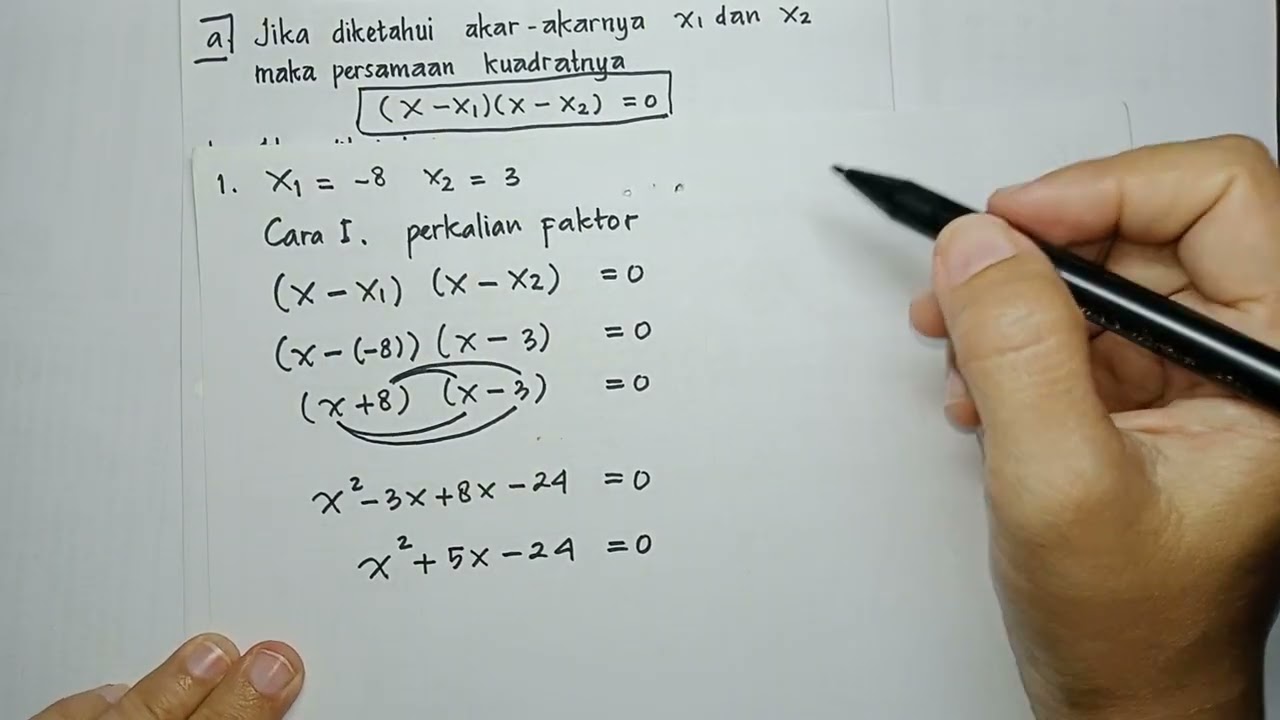 a] Jika diketahui akar-akarnya x₁ dan x₂
maka persamaan kuadratnya
(x - x₁)(x - x₂) = 0
1. x₁ = -8 x₂ = 3
Cara I. perkalian faktor
(x - x₁) (x - x₂) = 0
(x - (-8)) (x - 3) = 0
(x + 8) (x - 3) = 0
x² - 3x + 8x - 24 = 0
x² + 5x - 24 = 0